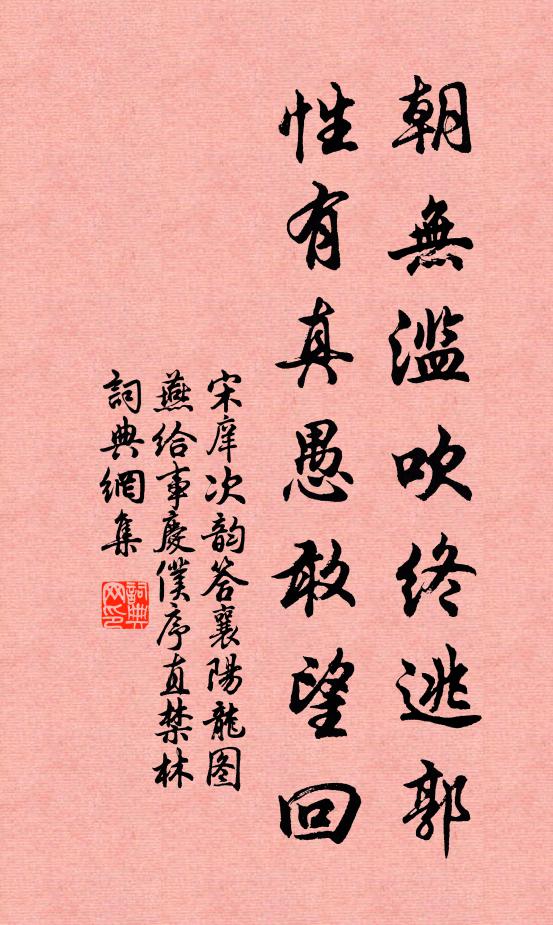 朝無濫吹終逃郭
性有真愚敢望回
宋庠次韵答襄陽龍图
燕给事慶僕序直禁林
詞典網集
詞典
网印